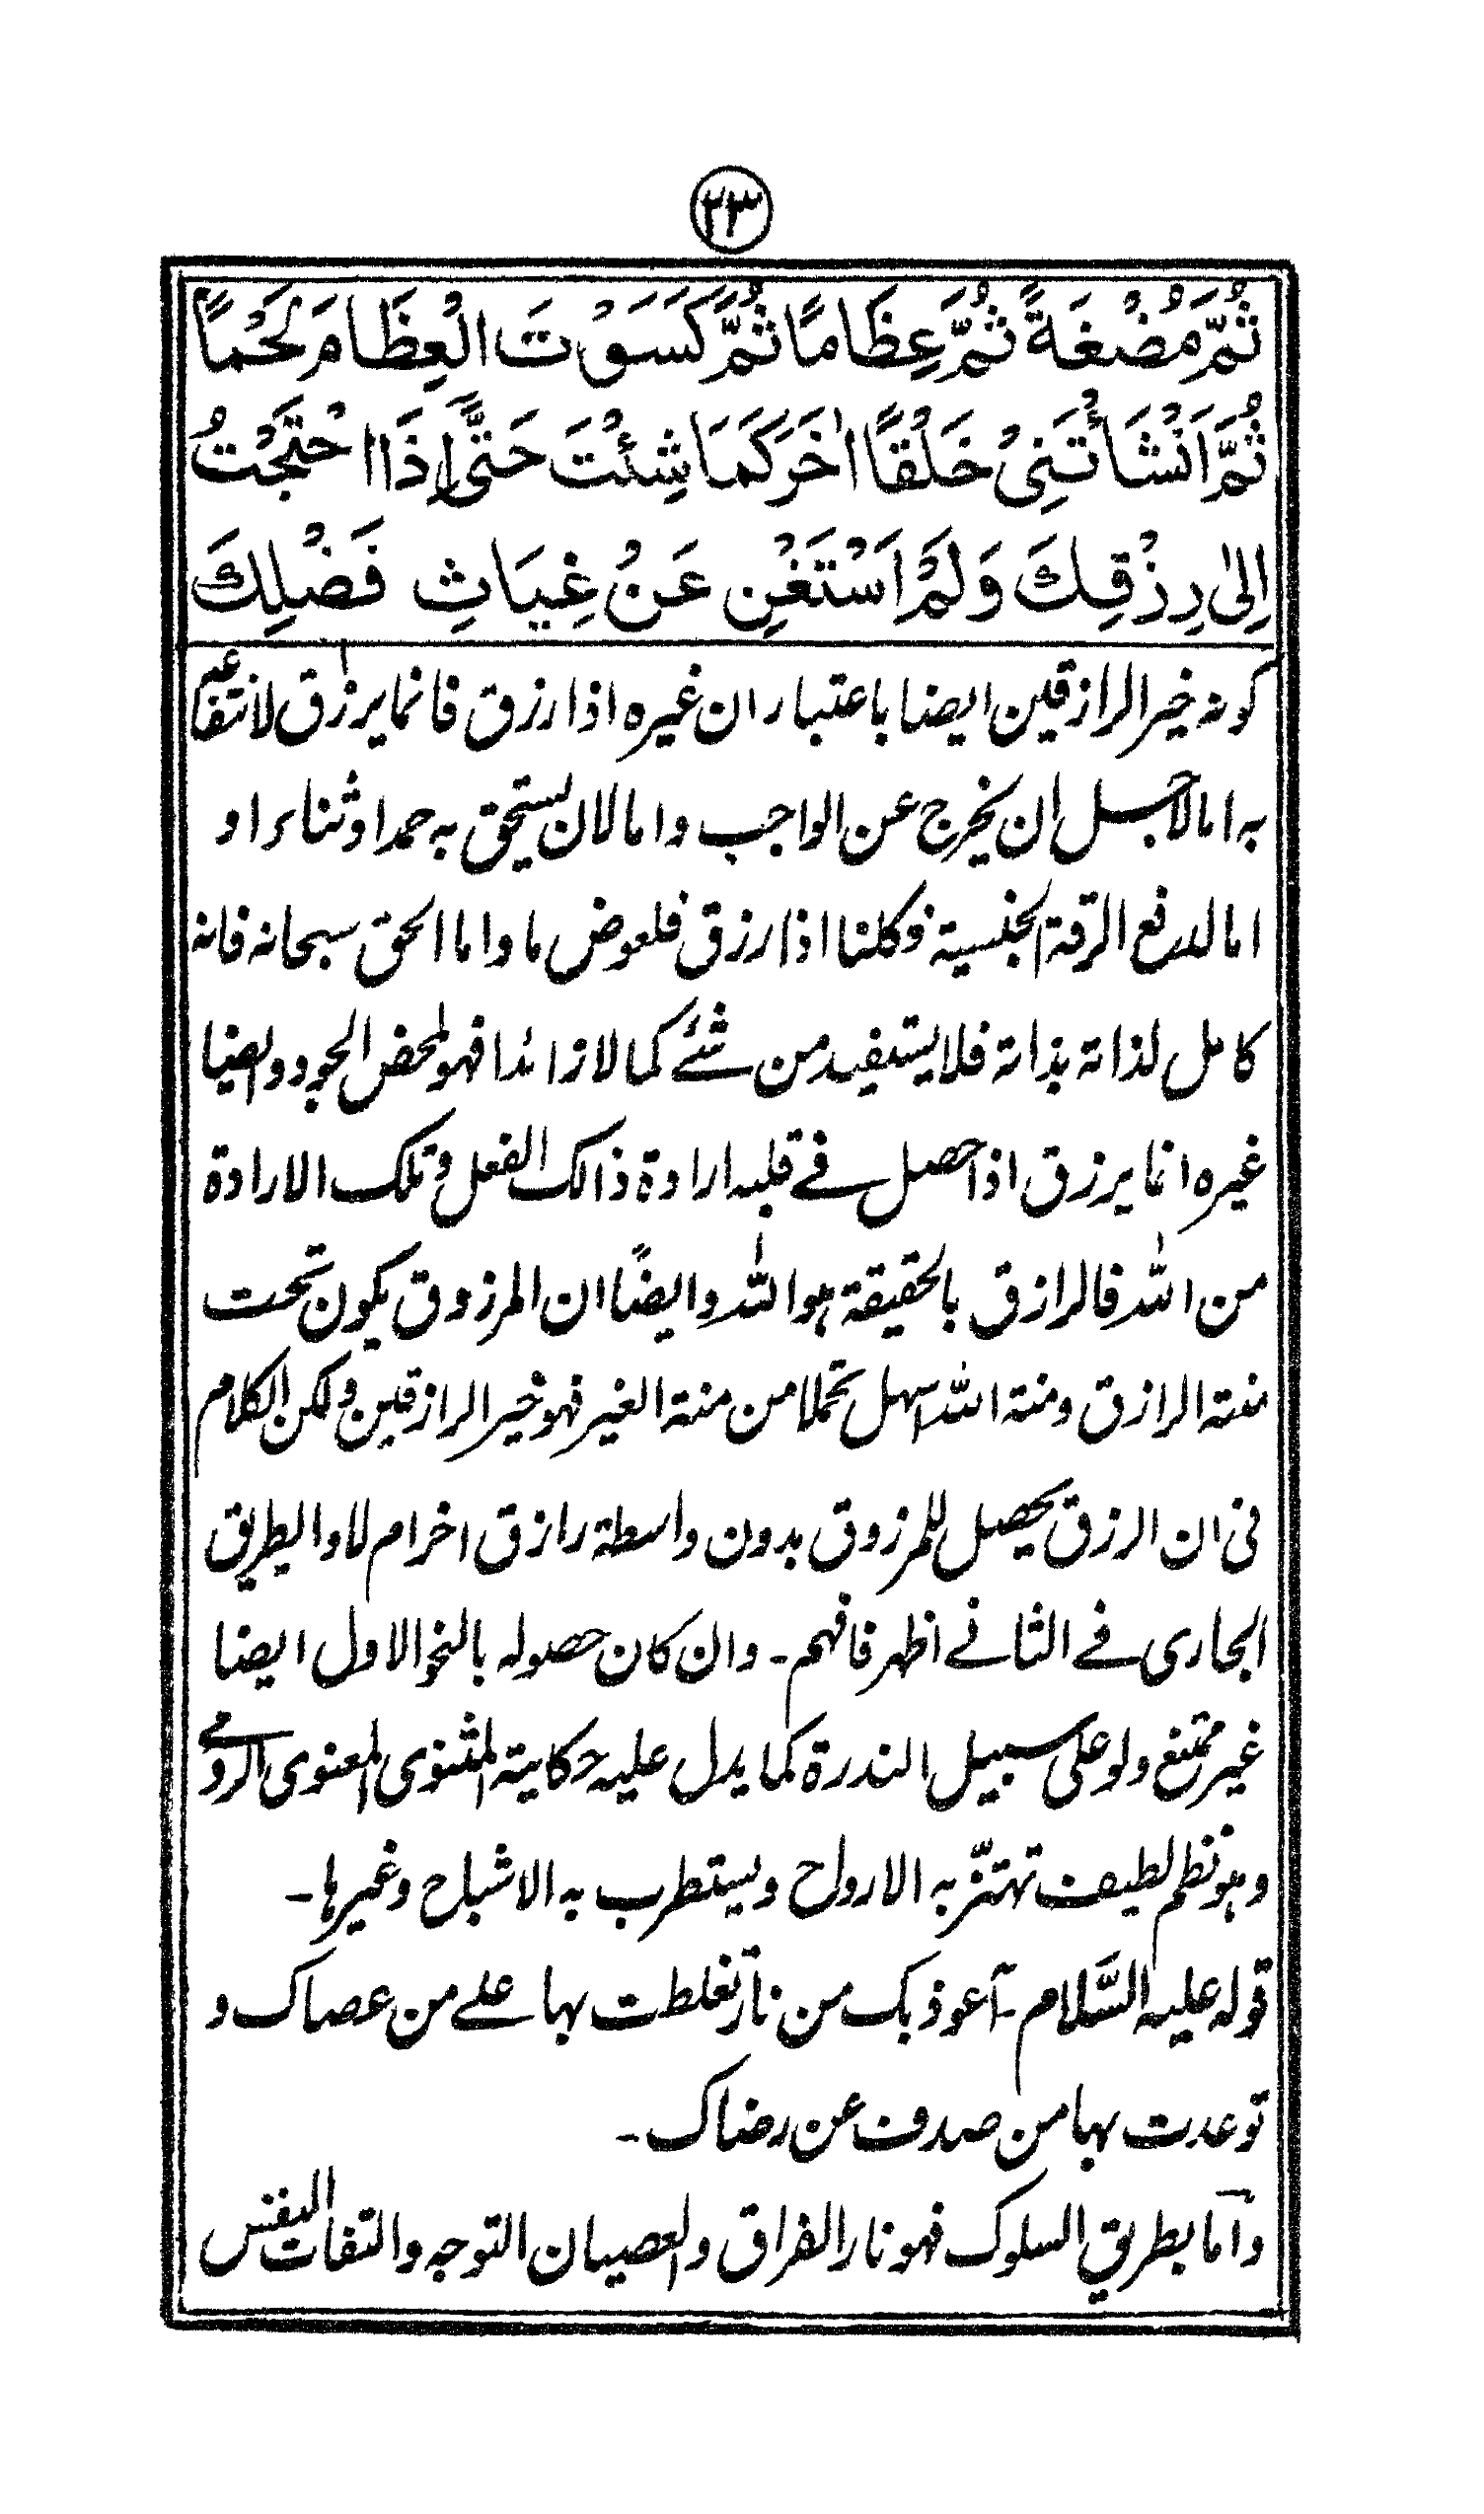 ٢٣
ثُمَّ مُضْغَةً ثُمَّ عِظَامًا ثُمَّ كَسَوْتَ الْعِظَامَ لَحْمًا
ثُمَّ اَنْشَأْتَنِیْ خَلْقًا اٰخَرَ كَمَا شِئْتَ حَتّٰی اِذَا احْتَجْتُ
اِلیٰ رِزْقِكَ وَلَمْ اَسْتَغْنِ عَنْ غِیَاثِ فَضْلِكَ
كونه خير الرازقين ايضا باعتبار ان غيره اذا رزق فانما يرزق لانتفاعه
به اما لاجل ان يخرج عن الواجب واما لان يستحق به حمدا وثناء او
اما لدفع الرقة الجنسية فكلنا اذا رزق فلعوض ما واما الحق سبحانه فانه
كامل لذاته بذاته فلا يستفيد من شئے كمالا زائدا فهو لمحض الجود وايضا
غيره انما يرزق اذا حصل فے قلبه ارادة ذالك الفعل وتلك الارادة
من الله فالرازق بالحقيقة هو الله وايضًا ان المرزوق يكون تحت
منة الرازق ومنة الله اسهل تحملا من منة الغير فهو خير الرازقين ولكن الكلام
فى ان الرزق يحصل للمرزوق بدون واسطة رازق اخر ام لا والطريق
الجارى فے الثانے اظهر فافهم۔ وان كان حصوله بالنحو الاول ايضا
غير ممتنع ولو على سبيل الندرة كما يدل عليه حكاية المثنوى المعنوى الرومے
وهو نظم لطيف تهتزّ به الارواح ويستطرب به الاشباح وغيرها۔
قوله عليه السَّلام۔ آعوذ بك من نار تغلظت بها علے من عصاك و
توعدت بها من صدف عن رضاك۔
وآما بطريق السلوك فهو نار الفراق والعصيان التوجه والتفات النفس